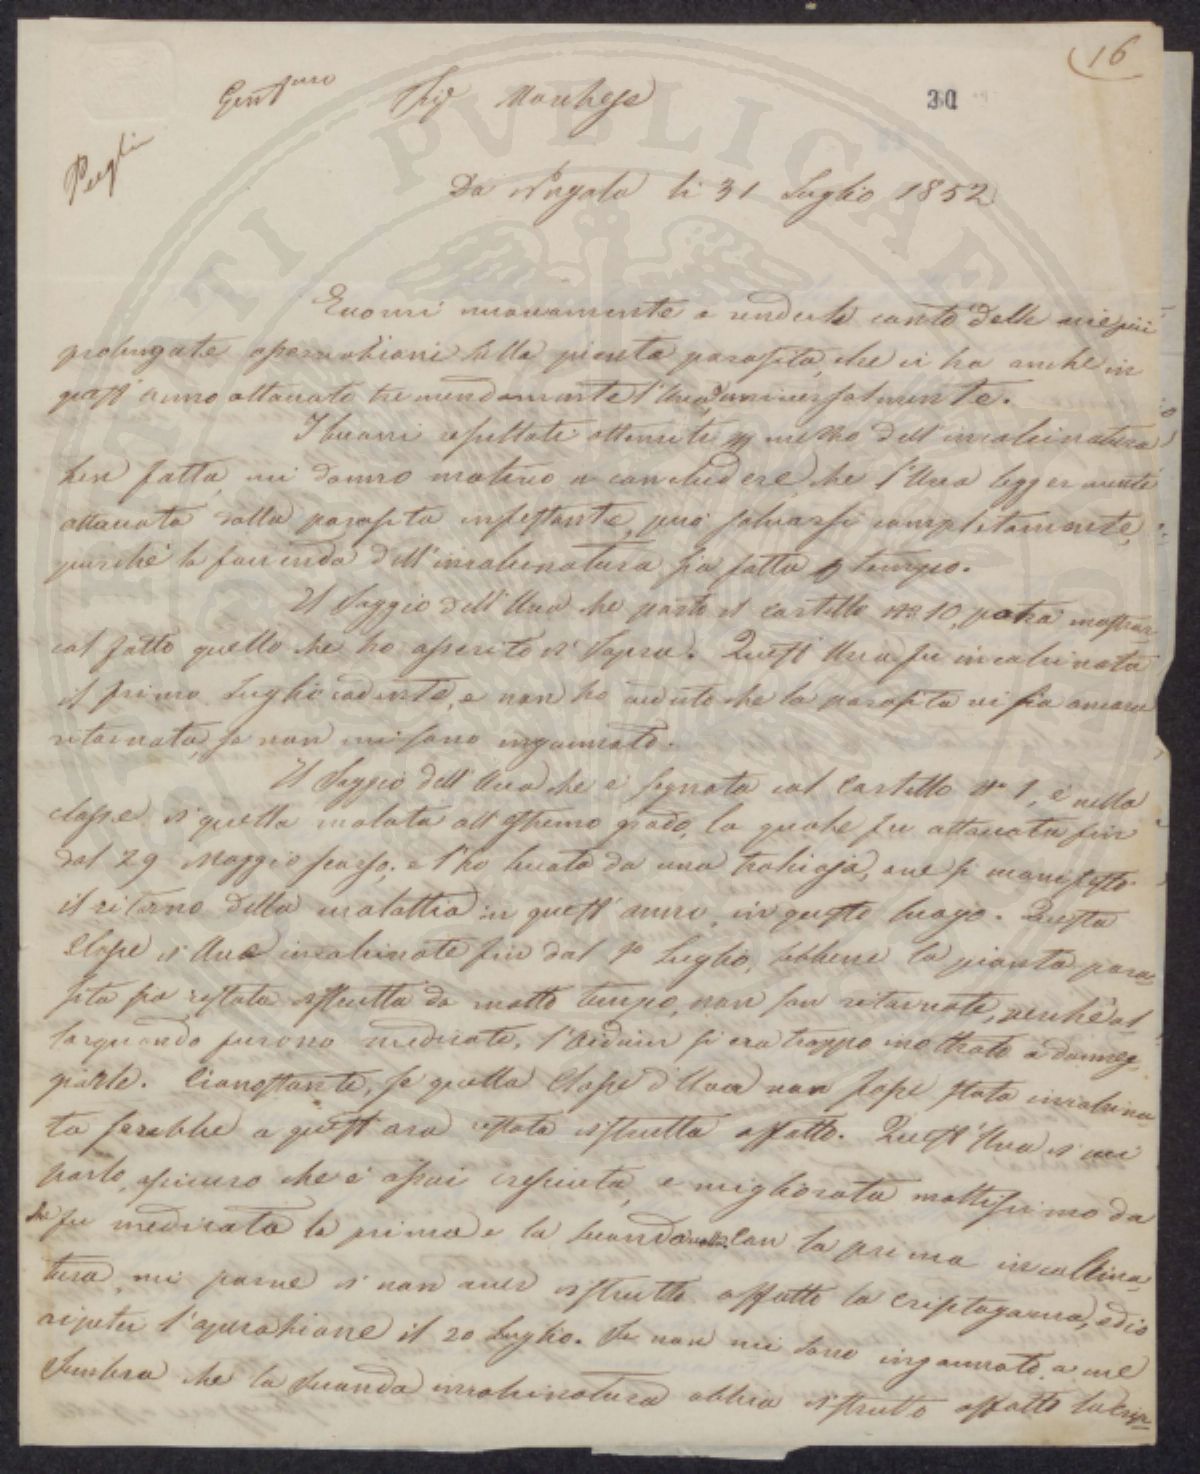 16
Gent.mo Sig.r Marchese
30
Pugli
Da Nugola li 31 Luglio 1852
Eccomi nuovamente a renderle conto delle mie più
prolungate osservazioni sulla pianta parasita, che ci ha anche in
quest'anno attaccato tremendamente l'Uva, universalmente.
I buoni resultati ottenuti p mezzo dell'incalcinatura
ben fatta, mi danno motivo a concludere, che l'Uva leggermente
attaccata dalla parasita infestante, può salvarsi completamente,
purché la faccenda dell'incalcinatura sia fatta p tempo.
Il Saggio dell'Uva che porta il cartello No 10, potrà mostrar
col fatto quello che ho asserito di sopra. Quest'Uva fu incalcinata
il primo Luglio cadente, e non ho veduto che la parasita vi sia ancora
ritornata, se non mi sono ingannato.
Il Saggio dell'Uva che è segnata col Cartello No 1, è nella
classe di quella malata all'estremo grado, la quale fu attaccata fin
dal 29 Maggio scorso, e l'ho levata da una tralciaja, ove si manifestò
il ritorno della malattia in quest'anno, in questo luogo. Questa
Classe di Uva incalcinate fin dal po Luglio, sebbene la pianta para-
sita sia restata distrutta da molto tempo, non son ritornate, perchè al-
lorquando furono medicate, l'Oidium si era troppo inoltrato a danneg-
giarle. Cionostante, se quella Classe d'Uva non fosse stata incalcina-
ta sarebbe a quest'ora restata distrutta affatto. Quest'Uva di cui
parlo, assicuro che è assai cresciuta, e migliorata moltissimo da
che fu medicata la prima e la seconda volta. Con la prima incalcina-
tura, mi parve di non aver distrutto affatto la Criptogama, ed io
ripetei l'operazione il 20 Luglio. Se non mi sono ingannato, a me
sembra che la seconda incalcinatura abbia distrutto affatto la Crip-